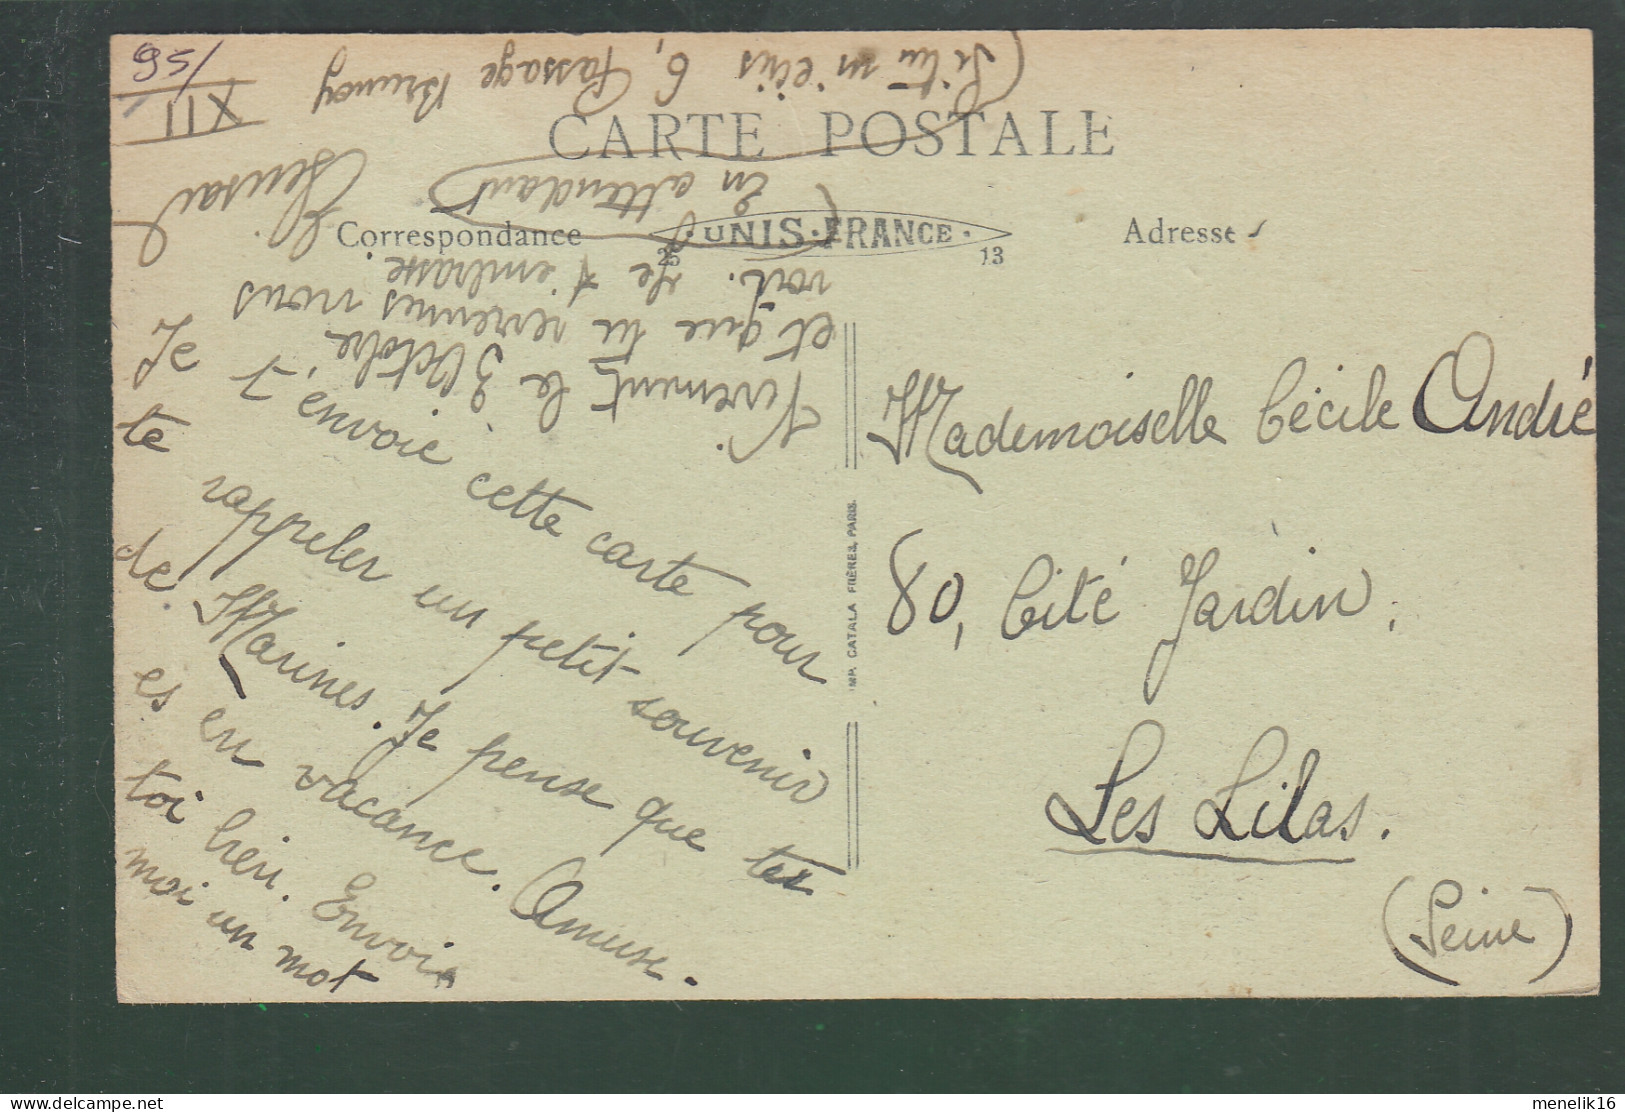 CARTE POSTALE
Correspondance
UNIS-FRANCE
25
13
Adresse
Je t'envoie cette carte pour
te rappeler un petit souvenir
de Marines. Je pense que tu
es en vacance. Amuse-
toi bien. Envoie
moi un mot
Vivement le 3 Octobre
et que tu reviennes nous
voir. Je t'embrasse.
En attendant
(Si tu m'écris 6, Passage Brunoy
XII
Mademoiselle Cécile André
80, Cité Jardin,
Les Lilas.
(Seine)
IMP. CATALA FRÈRES, PARIS.
menelik16